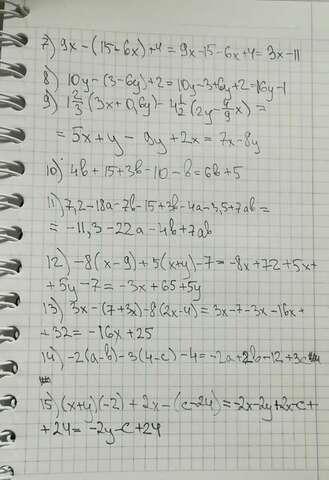 7) 9x-(15+6x)+4=9x-15-6x+4=3x-11
8) 10y-(3-6y)+2=10y-3+6y+2=16y-1
9) 1 2/3(3x+0,6y)-4 1/2(2y-4/9x)=
=5x+y-9y+2x=7x-8y
10) 4b+15+3b-10-b=6b+5
11) 7,2-18a-7b-15+3b-4a-3,5+7ab=
=-11,3-22a-4b+7ab
12) -8(x-9)+5(x+y)-7=-8x+72+5x+
+5y-7=-3x+65+5y
13) 3x-(7+3x)-8(2x-4)=3x-7-3x-16x+
+32=-16x+25
14) -2(a-b)-3(4-c)-4=-2a+2b-12+3c
15) (x+y)(-2)+2x-(c-24)=-2x-2y+2x-c+
+24=-2y-c+24